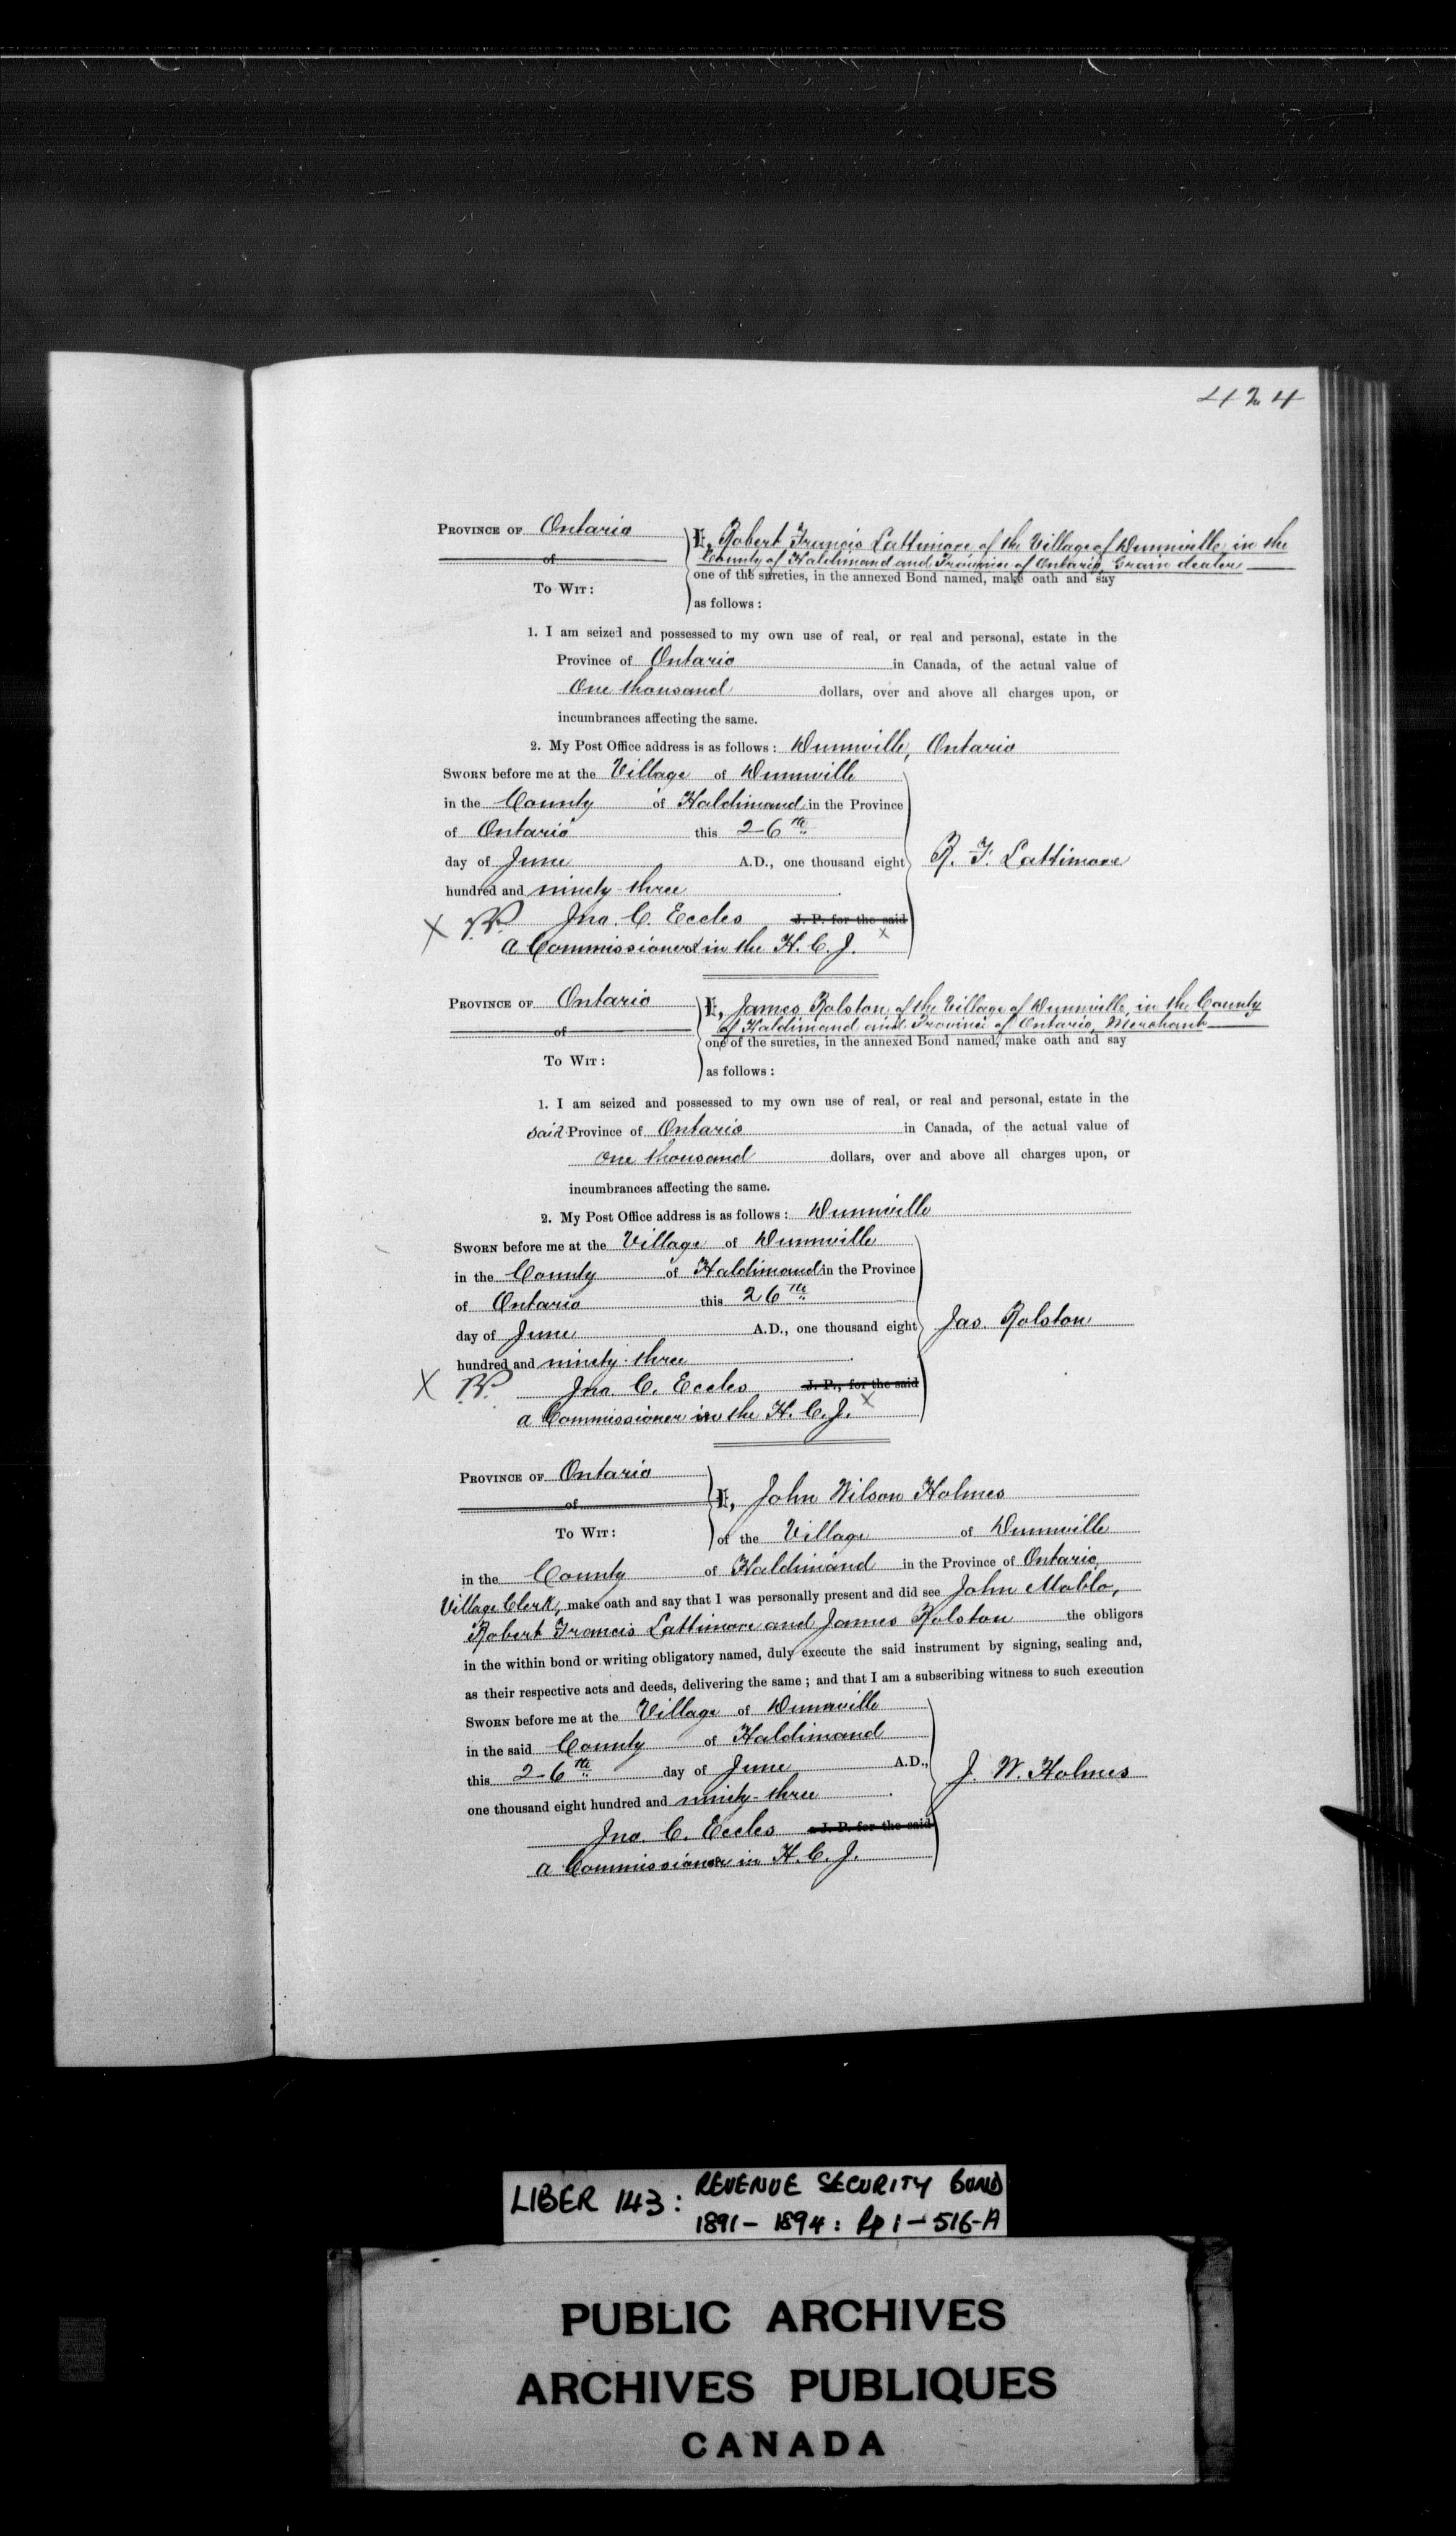 424
PROVINCE OF Ontario
of
TO WIT:
I, Robert Francis Lattimore of the Village of Dunnville, in the
County of Haldimand and Province of Ontario, Grain dealer
one of the sureties, in the annexed Bond named, make oath and say
as follows:
1. I am seized and possessed to my own use of real, or real and personal, estate in the
Province of Ontario in Canada, of the actual value of
One thousand dollars, over and above all charges upon, or
incumbrances affecting the same.
2. My Post Office address is as follows: Dunnville, Ontario
SWORN before me at the Village of Dunnville
in the County of Haldimand in the Province
of Ontario this 26th
day of June A.D., one thousand eight
hundred and ninety three
R. F. Lattimore
X Jno. C. Eccles J. P. for the said
a Commissioner in the H. C. J. x
PROVINCE OF Ontario
of
TO WIT:
I, James Rolston of the Village of Dunnville, in the County
of Haldimand and Province of Ontario, Merchant
one of the sureties, in the annexed Bond named, make oath and say
as follows:
1. I am seized and possessed to my own use of real, or real and personal, estate in the
said Province of Ontario in Canada, of the actual value of
one thousand dollars, over and above all charges upon, or
incumbrances affecting the same.
2. My Post Office address is as follows: Dunnville
SWORN before me at the Village of Dunnville
in the County of Haldimand in the Province
of Ontario this 26th
day of June A.D., one thousand eight
hundred and ninety-three
Jas. Rolston
X Jno. C. Eccles J. P., for the said
a Commissioner in the H. C. J. x
PROVINCE OF Ontario
of
TO WIT:
I, John Wilson Holmes
of the Village of Dunnville
in the County of Haldimand in the Province of Ontario,
Village Clerk, make oath and say that I was personally present and did see John Mablo,
Robert Francis Lattimore and James Rolston the obligors
in the within bond or writing obligatory named, duly execute the said instrument by signing, sealing and,
as their respective acts and deeds, delivering the same; and that I am a subscribing witness to such execution
SWORN before me at the Village of Dunnville
in the said County of Haldimand
this 26th day of June A.D.,
one thousand eight hundred and ninety-three
J. W. Holmes
Jno. C. Eccles J. P. for the said
a Commissioner in H. C. J.
LIBER 143: REVENUE SECURITY BOND
1891-1894: Pp 1-516-A
PUBLIC ARCHIVES
ARCHIVES PUBLIQUES
CANADA